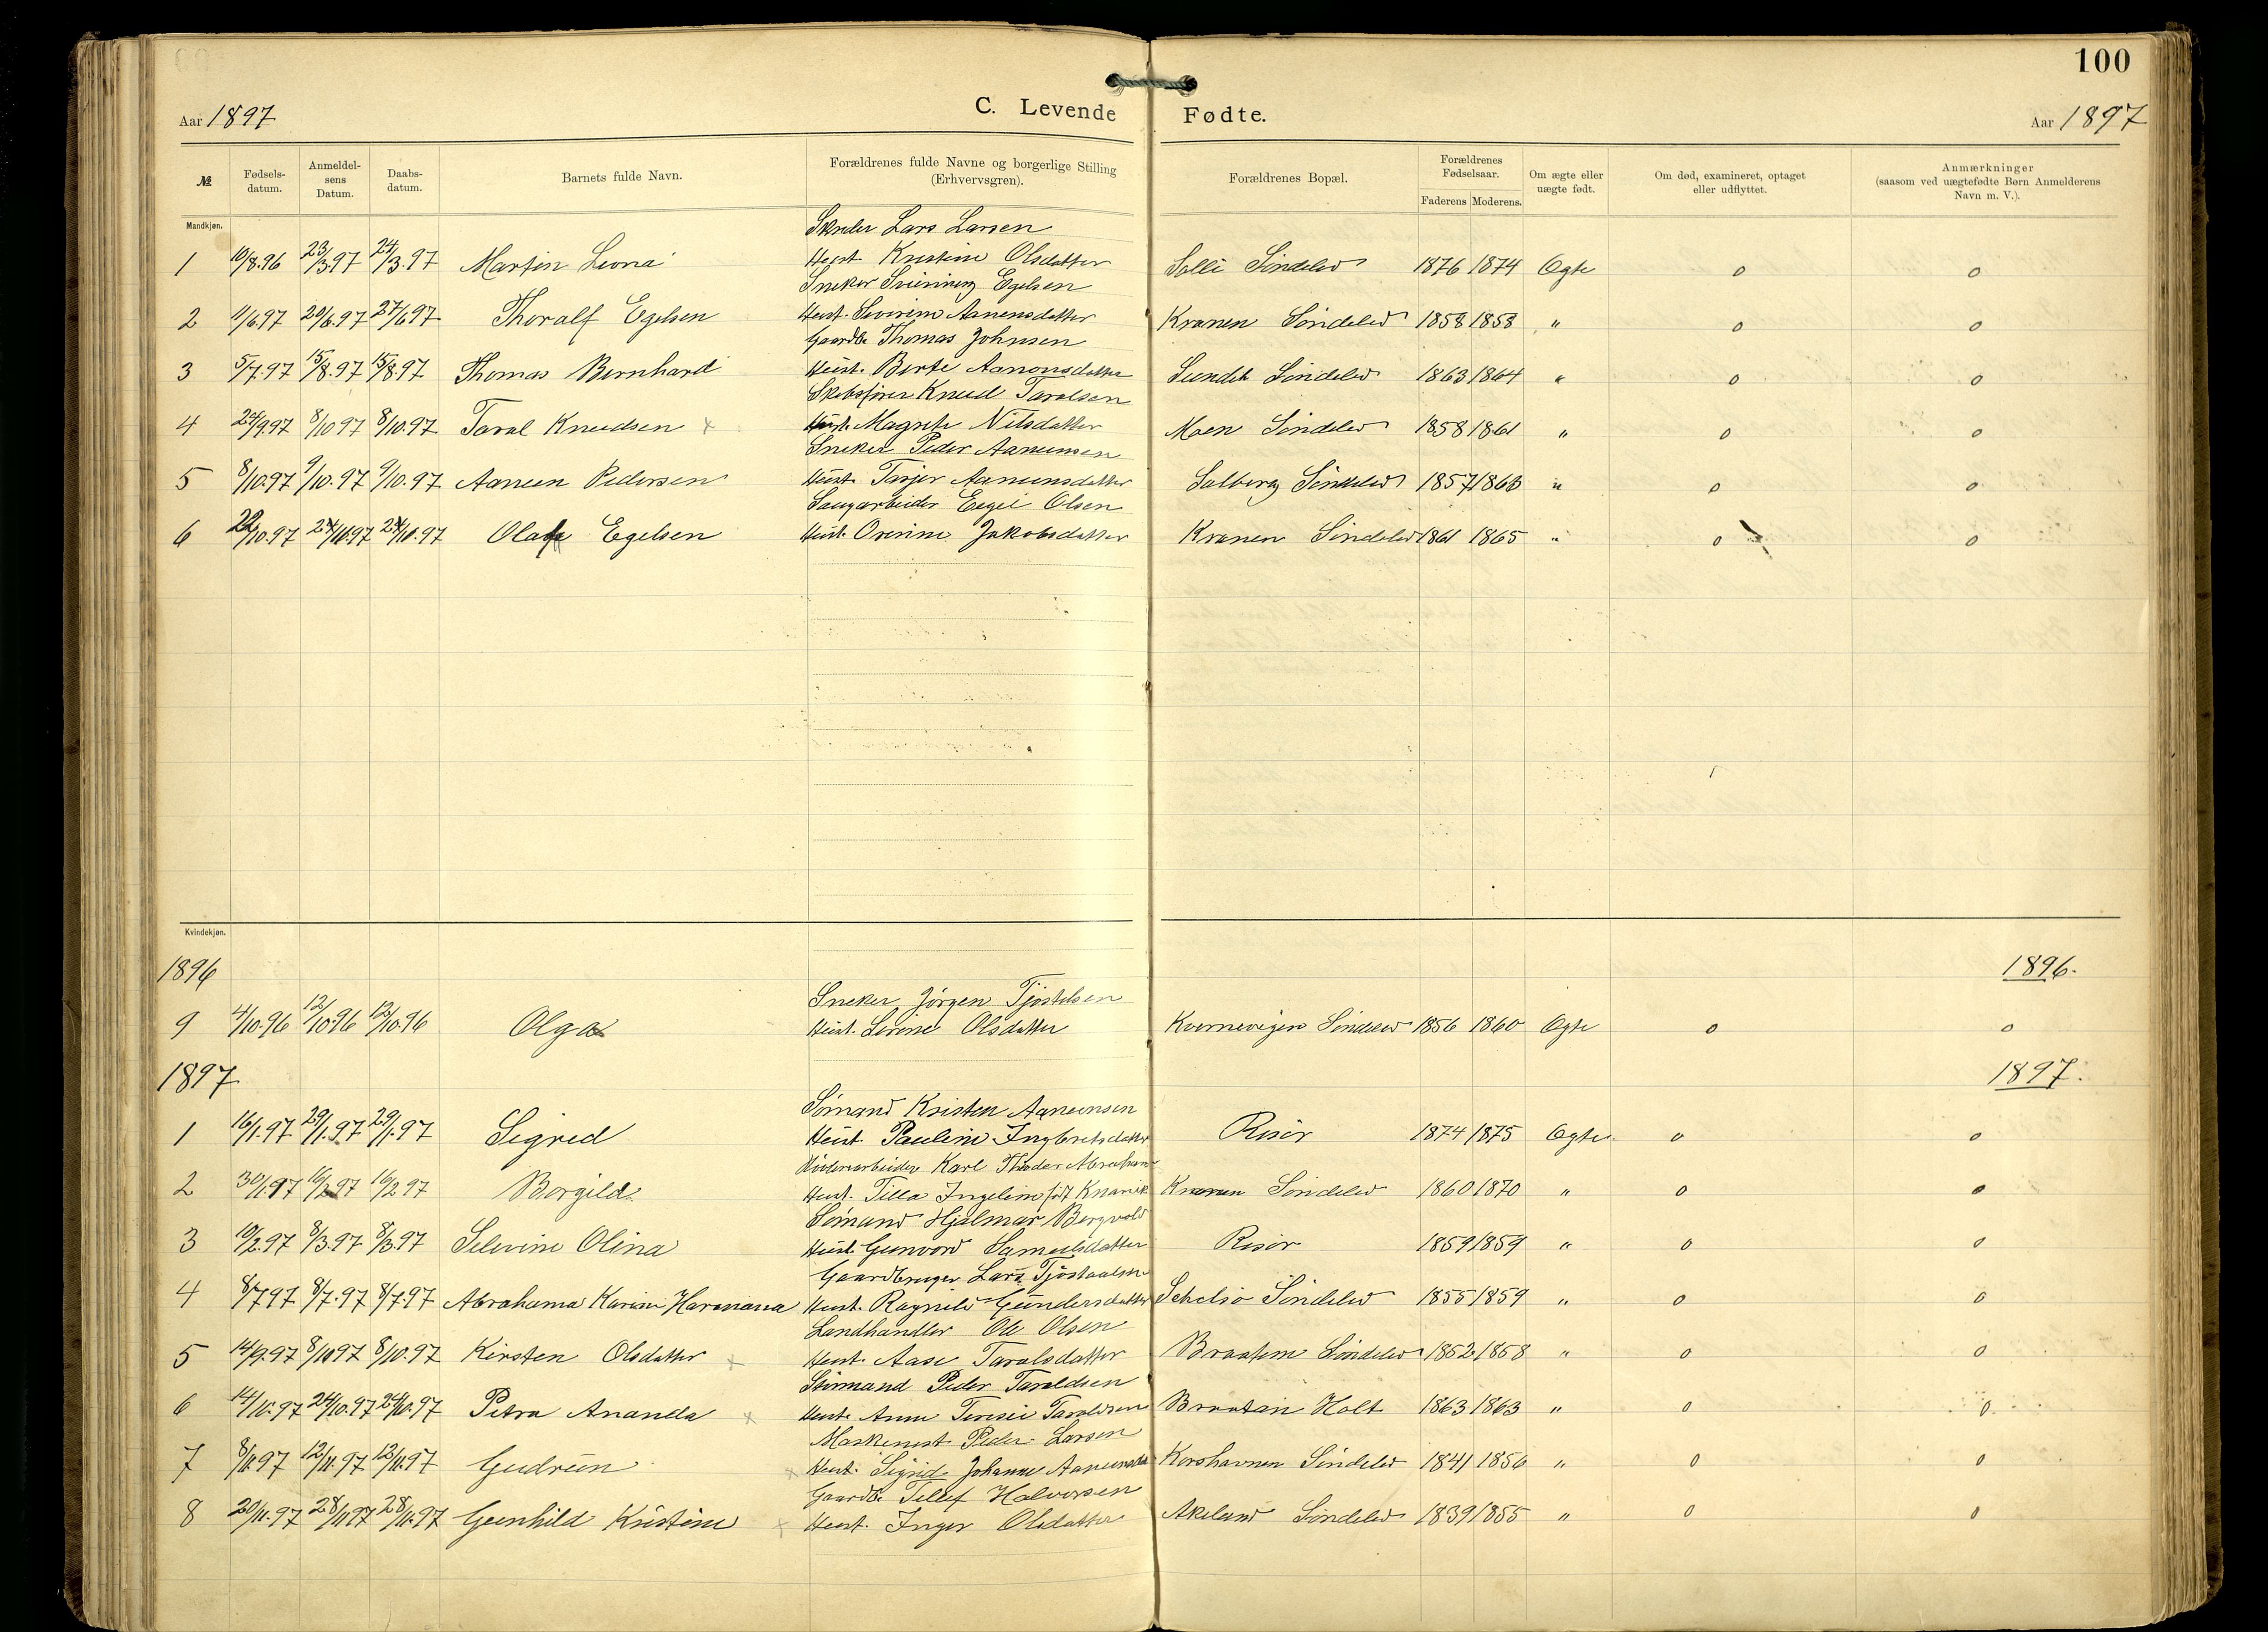 100
Aar 1897
C. Levende Fødte.
Aar 1897
№ Fødsels-datum. Anmeldel-sens Datum. Daabs-datum. Barnets fulde Navn. Forældrenes fulde Navne og borgerlige Stilling (Erhvervsgren). Forældrenes Bopæl. Forældrenes Fødselsaar. Faderens Moderens. Om ægte eller uægte født. Om død, examineret, optaget eller udflyttet. Anmærkninger (saasom ved uægtefødte Børn Anmelderens Navn m. V.).
Mandkjøn.
Lars Larsen
1 10/8.96 23/3.97 24/3.97 Martin Hust. Kristine Olsdatter Solli Söndeled 1876 1874 Ægte 0 0
Sneker Egelsen
2 1/6.97 20/6.97 27/6.97 Thoralf Egelsen Hust. Severine Aanensdatter Kranen Söndeled 1858 1858 " 0 0
Gaardb. Thomas Johnsen
3 5/7.97 15/8.97 15/8.97 Thomas Bernhard Hust. Berte Aanonsdatter Sundet Söndeled 1863 1864 " 0 0
Skibsfører Knud Taralsen
4 24/9.97 8/10 97 8/10.97 Taral Knudsen x Hust. Magrete Nilsdatter Moen Söndeled 1858 1861 " 0 0
Sneker Peder Aanunsen
5 8/10.97 9/10.97 9/10.97 Aanun Pedersen Hust. Tarjer Aanunsdatter Solberg Söndeled 1857 1863 " 0 0
Saugarbeider Eegel Olsen
6 22/10.97 24/10.97 24/10.97 Olaf Egelsen Hust. Jakobsdatter Kranen Söndeled 1861 1865 " 0 0
Kvindekjøn.
1896 1896.
Sneker Jörgen Tjöstelsen
9 4/10.96 12/10.96 12/10.96 Olga Hust. Serine Olsdatter Kvernevigen Söndeled 1856 1860 Ægte 0 0
1897 1897.
Sömand Kristen Aanunsen
1 16/1.97 29/1.97 29/1.97 Sigrid Hust. Pauline Ingbretsdatter Risör 1874 1875 Ægte 0 0
Karl Abraham
2 30/1.97 16/2 97 16/2 97 Borgild Hust. Tilla Ingeline född Kranen Söndeled 1860 1870 " 0 0
Sömand Hjalmar Bergvold
3 10/2.97 8/3.97 8/3.97 Selvine Olina Hust. Gunvord Samuelsdatter Risör 1859 1859 " 0 0
Gaardbruger Lars Tjöstaalsen
4 8/7 97 8/7.97 8/7.97 Abrahama Karine Harmana Hust. Ragnild Gundersdatter Söndeled 1855 1859 " 0 0
Landhandler Ole Olsen
5 14/9.97 8/10 97 8/10.97 Kirsten Olsdatter x Hust. Aase Taralsdatter Söndeled 1852 1858 " 0 0
Stirmand Peder Taraldsen
6 14/10.97 24/10.97 24/10.97 Petra Ananda x Hust. Anne Taraldsen Braatan Holt 1863 1863 " 0 0
Maskenist Peder Larsen
7 8/11.97 12/11.97 12/11.97 Gudrun x Hust. Sigrid Johanne Korshavnen Söndeled 1841 1856 " 0 0
Gaardb. Tellef Halvorsen
8 20/11.97 28/11 97 28/11.97 Gunhild Kristine x Hust. Inger Olsdatter Akeland Söndeled 1839 1855 " 0 0